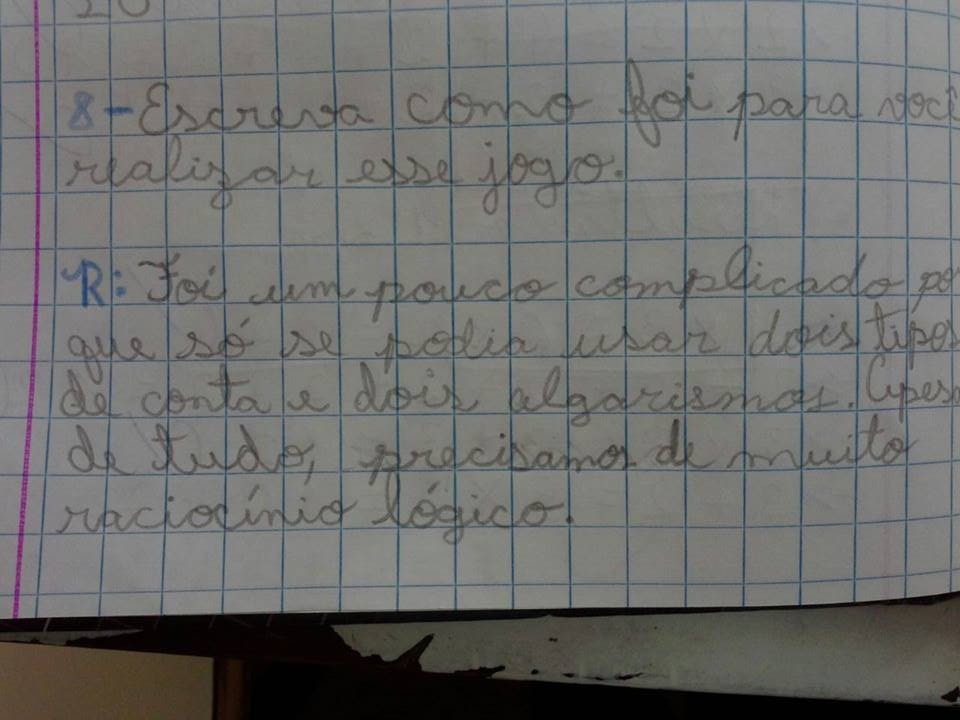 8-Escreva como foi para você
realizar esse jogo.
R: Foi um pouco complicado por
que só se podia usar dois tipos
de conta e dois algarismos. Apesar
de tudo, precisamos de muito
raciocínio lógico.